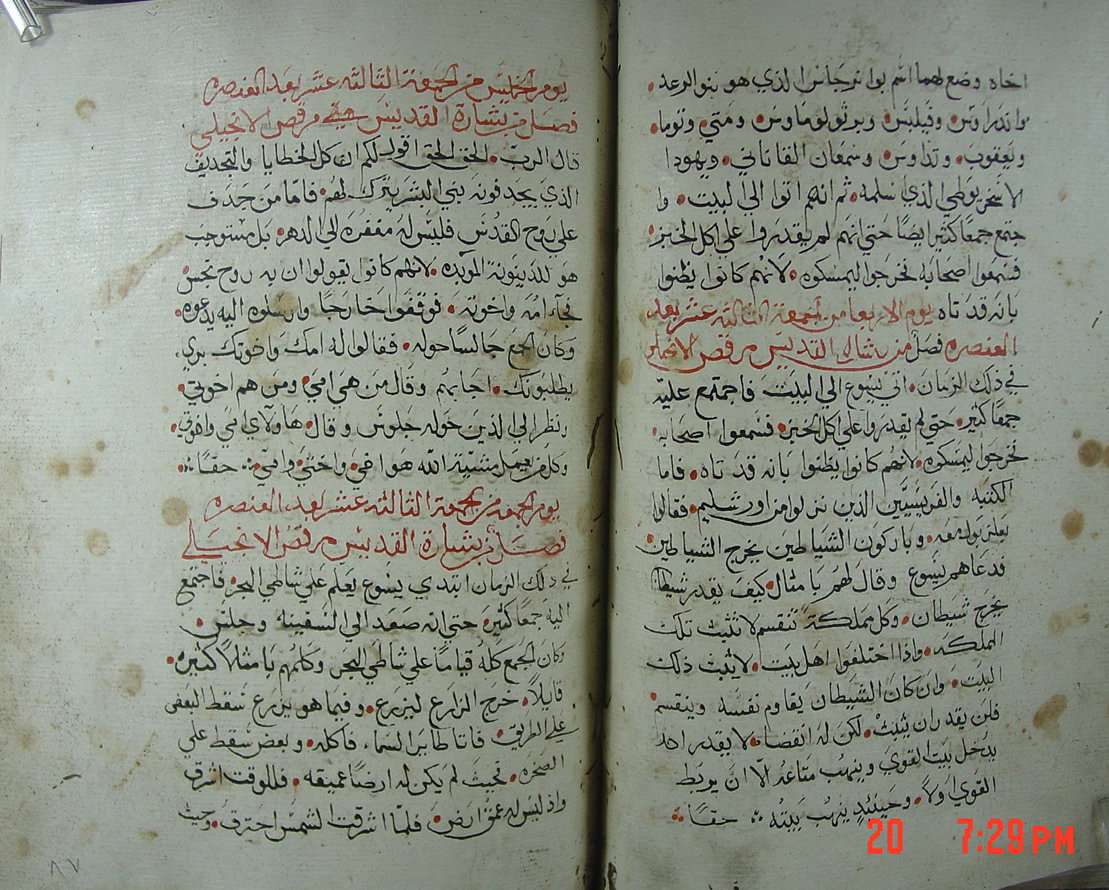 اخاه وضع لهما اسم بوانرجاس الذي هو بنو الرعد
واندراوس وفيلبس وبرثولوماوس ومتي وتوما
ويعقوب وتداوس وسمعان القاناني ويهودا
الاسخريوطي الذي اسلمه ثم انهم اتوا الي البيت وا
جتمع جمعًا كثير ايضًا حتي انهم لم يقدروا علي اكل الخبز
فسمعوا اصحابه فخرجوا ليمسكوه لانهم كانوا يظنوا
بانه قد تاه يوم الاربعا من الجمعة الثالثة عشر بعد
العنصره فصل من بشارة القديس مرقص الانجيلي
في ذلك الزمان اتي يسوع الي البيت فاجتمع عليه
جمعًا كثير حتي لم يقدروا علي اكل الخبز فسمعوا اصحابه
فخرجوا ليمسكوه لانهم كانوا يظنوا بانه قد تاه فاما
الكتبه والفريسيين الذين نزلوا من اورشليم فقالوا
بعلزبول معه وباركون الشياطين يخرج الشياطين
فدعاهم يسوع وقال لهم بامثال كيف يقدر شيطان
يخرج شيطان وكل مملكة تنقسم لا تثبت تلك
المملكه واذا اختلفوا اهل بيت لا يثبت ذلك
البيت وان كان الشيطان يقاوم نفسه وينقسم
فلن يقدر ان يثبت لكن له انقضا لا يقدر احد
يدخل بيت القوي وينهب متاعه الّا ان يربط
القوي اولاً وحينيذٍ ينهب بيته حقًا
يوم الخميس من الجمعة الثالثه عشر بعد العنصره
فصل من بشارة القديس مرقص الانجيلي
قال الرب الحق الحق اقول لكم ان كل الخطايا والتجديف
الذي يجدفونه بني البشر يترك لهم فاما من جدف
علي روح القدس فليس له مغفره الي الدهر بل مستوجب
هو للدينونه الموبده لانهم كانوا يقولوا ان به روح نجس
فجاء امه واخوته فوقفوا خارجًا وارسلوا اليه يدعوه
وكان الجمع جالسًا حوله فقالوا له امك واخوتك بري
يطلبونك اجابهم وقال من هي امي ومن هم اخوتي
ونظر الي الذين حوله جلوس وقال هاولاي امي واخوتي
وكل من يعمل مشيّة الله هو اخي واختي وامي حقًا
يوم الجمعه من الجمعة الثالثه عشر بعد العنصره
فصل من بشارة القديس مرقص الانجيلي
في ذلك الزمان ابتدي يسوع يعلم علي شاطي البحر فاجتمع
اليه جمعًا كثير حتي انه صعد الي السفينه وجلس
وكان الجمع كله قيامًا علي شاطي البحر وكلمهم بامثلاً كثيره
قايلاً خرج الزارع ليزرع وفيما هو يزرع سقط البعض
علي الطريق فاتا طاير السماء فاكله وبعض سقط علي
الصخره بحيث لم يكن له ارضًا عميقه فللوقت اشرق
واذ ليس له عمق ارض فلمّا اشرقت الشمس احترق وحيث
٨٧
20 7:29 PM